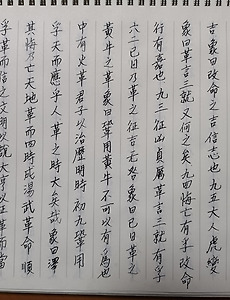 孚革而信之文明以說大亨以正革而當
其悔乃亡天地革而四時成湯武革命順
乎天而應乎人革之時大矣哉象曰澤
中有火革君子以治曆明時初九鞏用
黃牛之革象曰鞏用黃牛不可以有為也
六二巳日乃革之征吉无咎象曰巳日革之
行有嘉也九三征凶貞厲革言三就有孚
象曰革言三就又何之矣九四悔亡有孚改命
吉象曰改命之吉信志也九五大人虎變